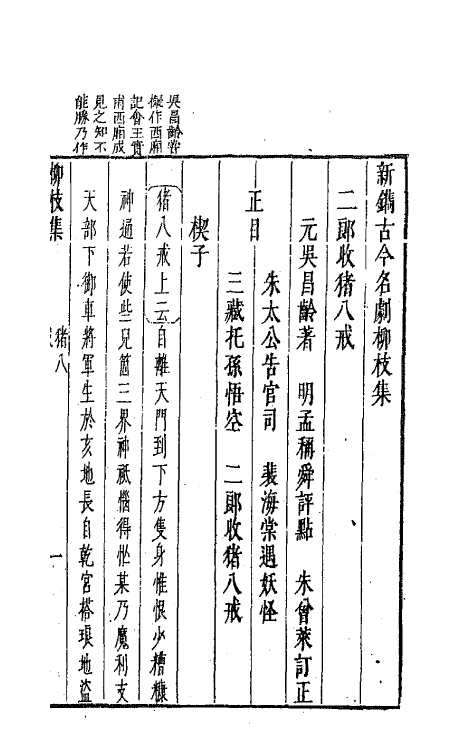 新鐫古今名劇柳枝集
二郎收猪八戒
元吳昌齡著 明孟稱舜評點 朱曾萊訂正
正目
朱太公告官司 裴海棠遇妖怪
三藏托孫悟空 二郎收猪八戒
楔子
猪八戒上云自離天門到下方隻身惟恨少糟糠
神通若使些兒箇三界神祇惱得忙某乃魔利支
天部下御車將軍生於亥地長自乾宮搭琅地盜
柳枝集
猪八戒
一
吳昌齡嘗
擬作西廂
記會王實
甫西廂成
見之知不
能勝乃作